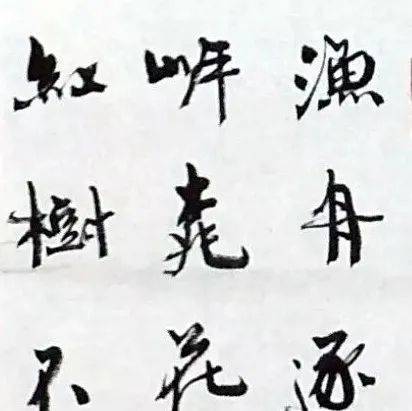 漁舟逐
岸桃花
紅樹不